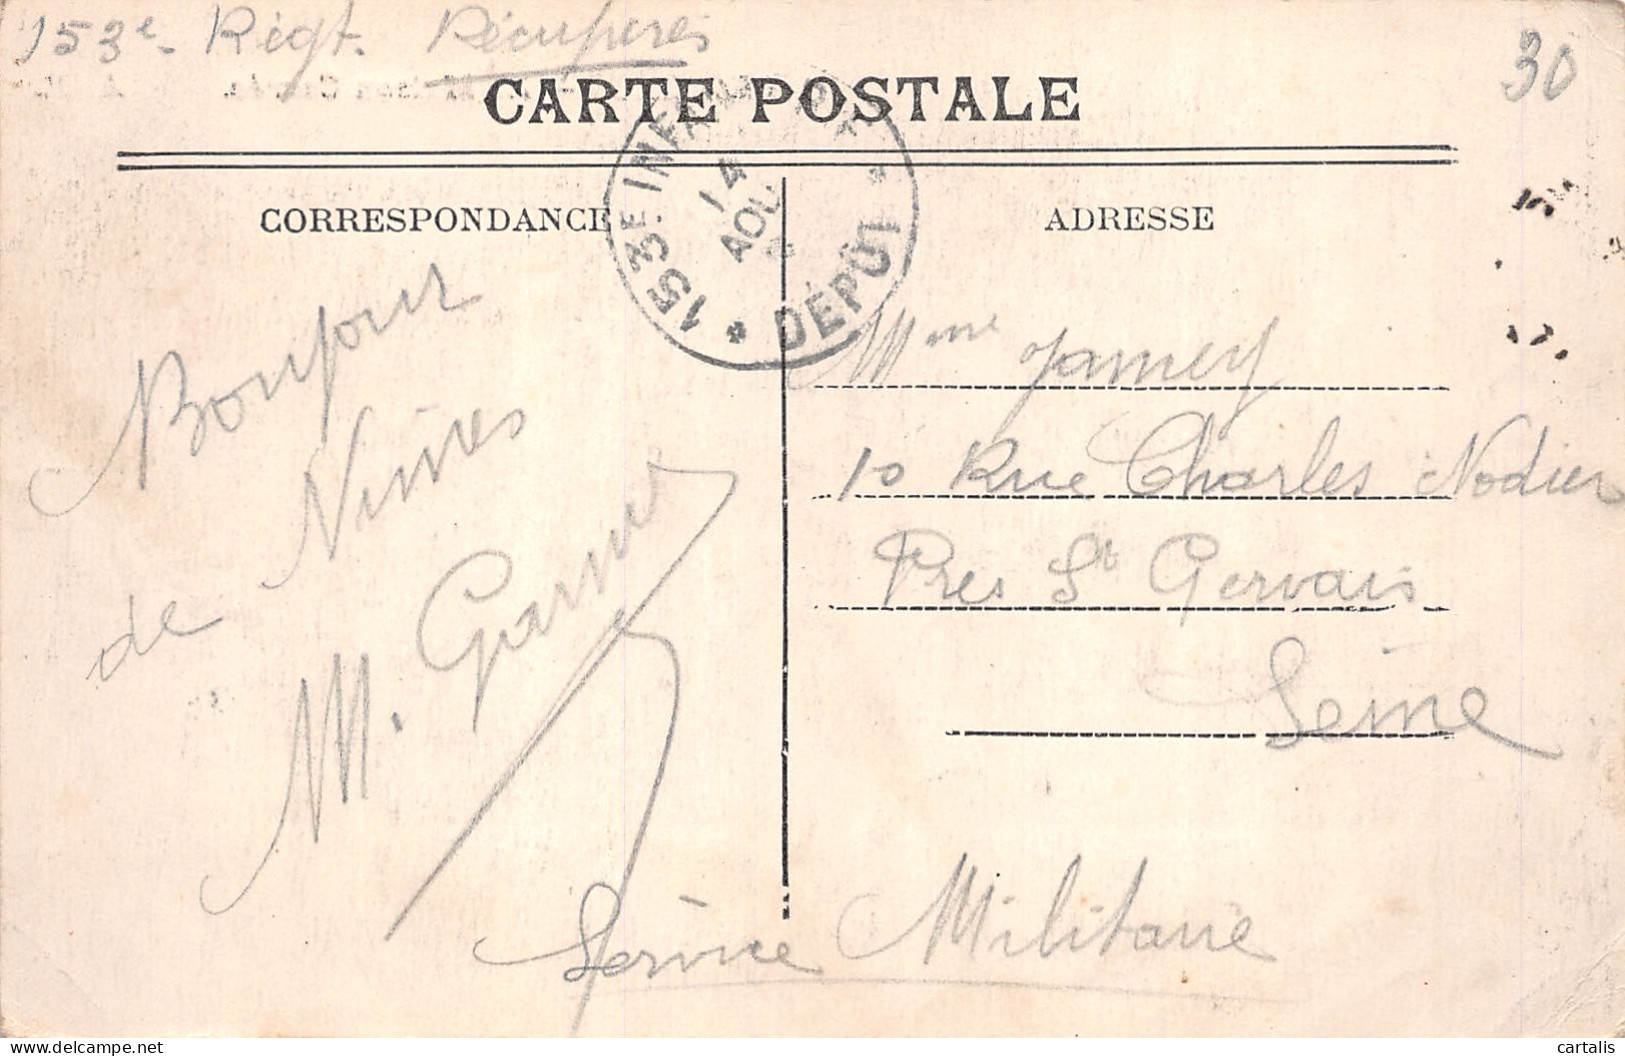 153e Regt. Récupérés
30
CARTE POSTALE
153E INFANTERIE
14
AOU
* DÉPÔT *
CORRESPONDANCE
ADRESSE
Bonjour
de
M.
Mme Jamey
10 Rue Charles Nodier
Pres St Gervais
Seine
Service Militaire
cartalis